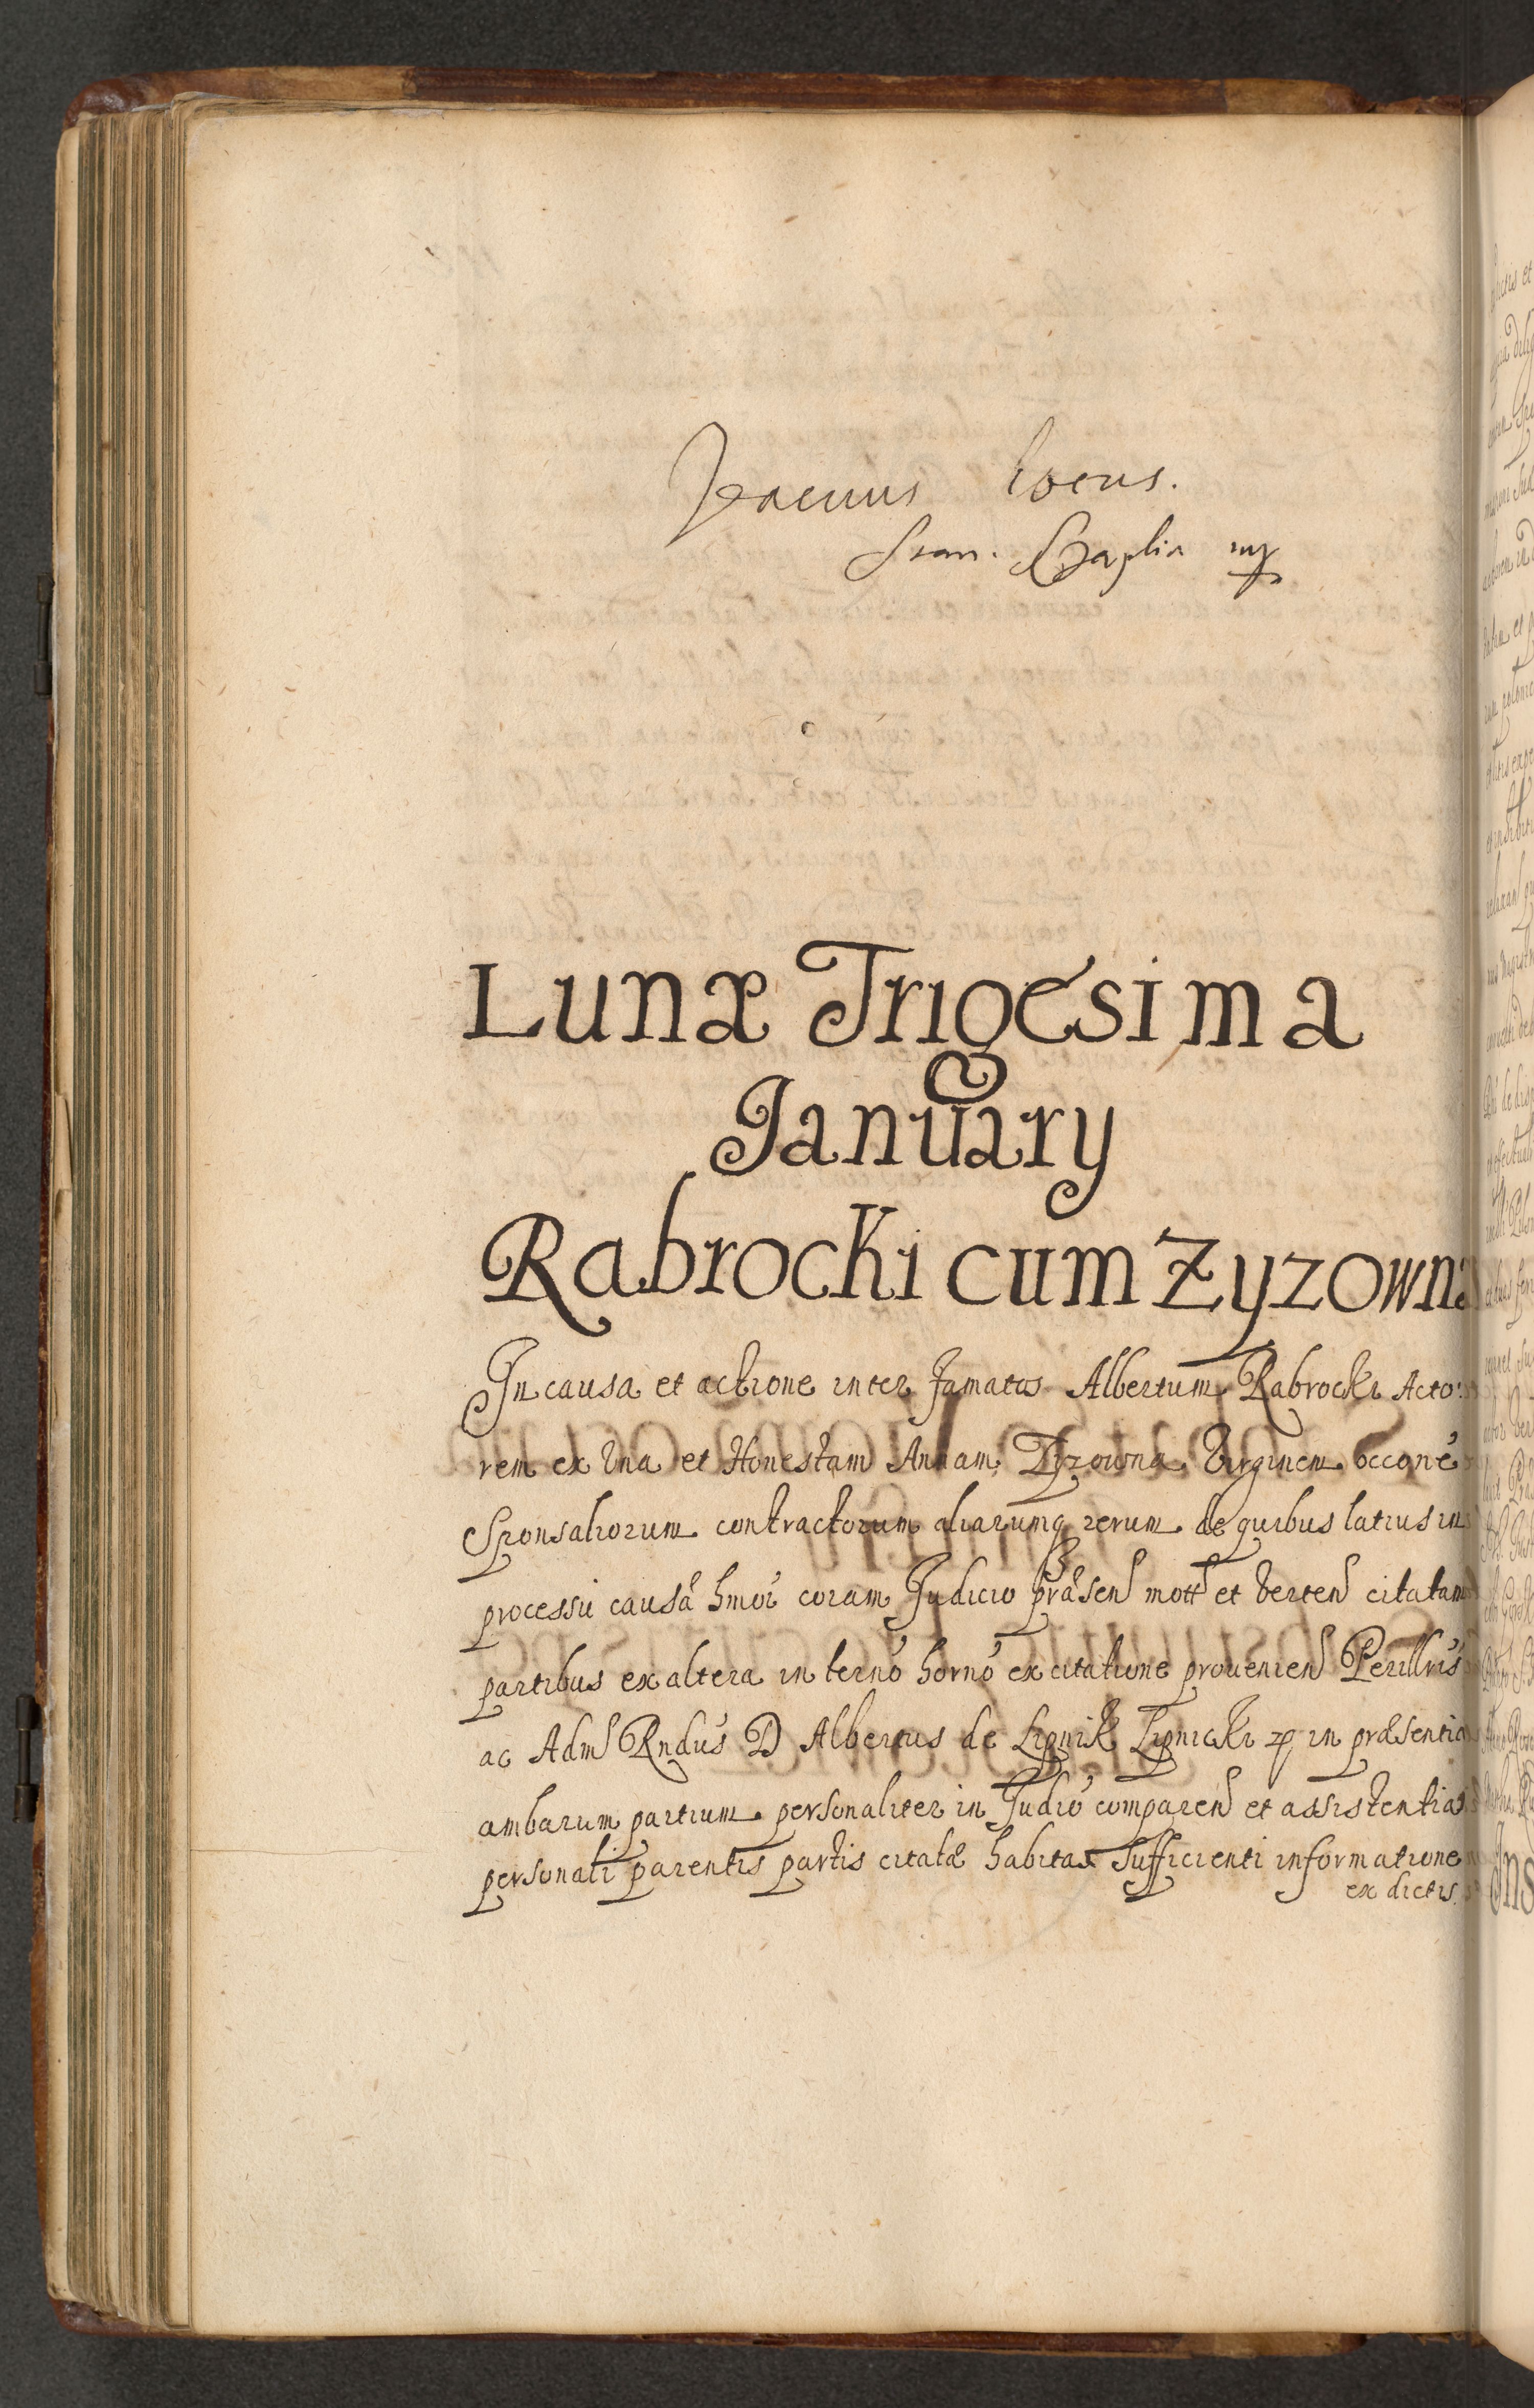 Vacuus locus.
Fran. Czaplin mp
Lunæ Trigesima
January
Rabrocki cum Zyzowna
In causa et actione inter famatos Albertum Rabrocki Acto:
rem ex una et Honestam Annam Zyzowna Virginem occone
Sponsaliorum contractorum aliarumq rerum de quibus latius in
processu causæ hmoi coram Judicio præsen mott et verten citatam
partibus ex altera in termo horno ex citatione provenien Perillris
ac Adm Rndus D Albertus de Lipnik Lipnicki in præsentia
ambarum partium personaliter in Judio comparen et assistentia
personali parentis partis citatæ habita sufficienti informatione
ex dictis